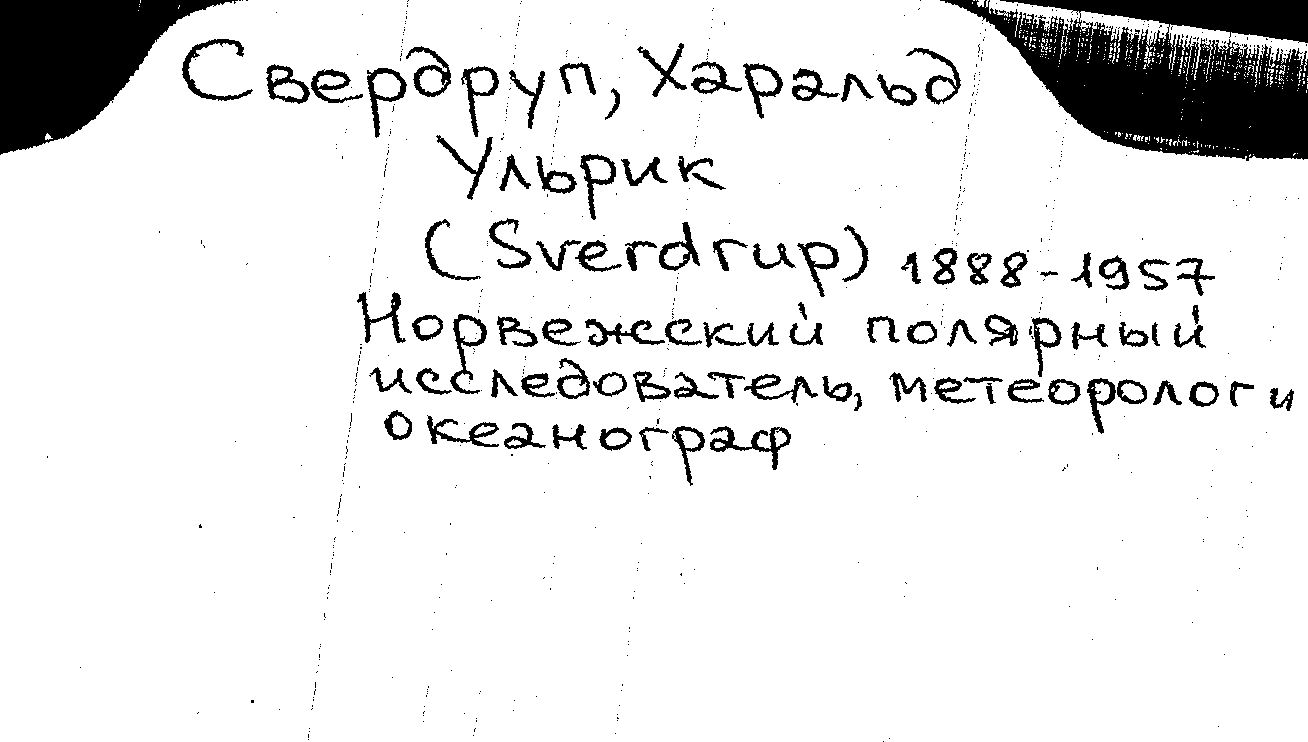 Свердруп, Харальд
Ульрик
(Sverdrup) 1888-1957
Норвежский полярный
исследователь, метеоролог и
океанограф